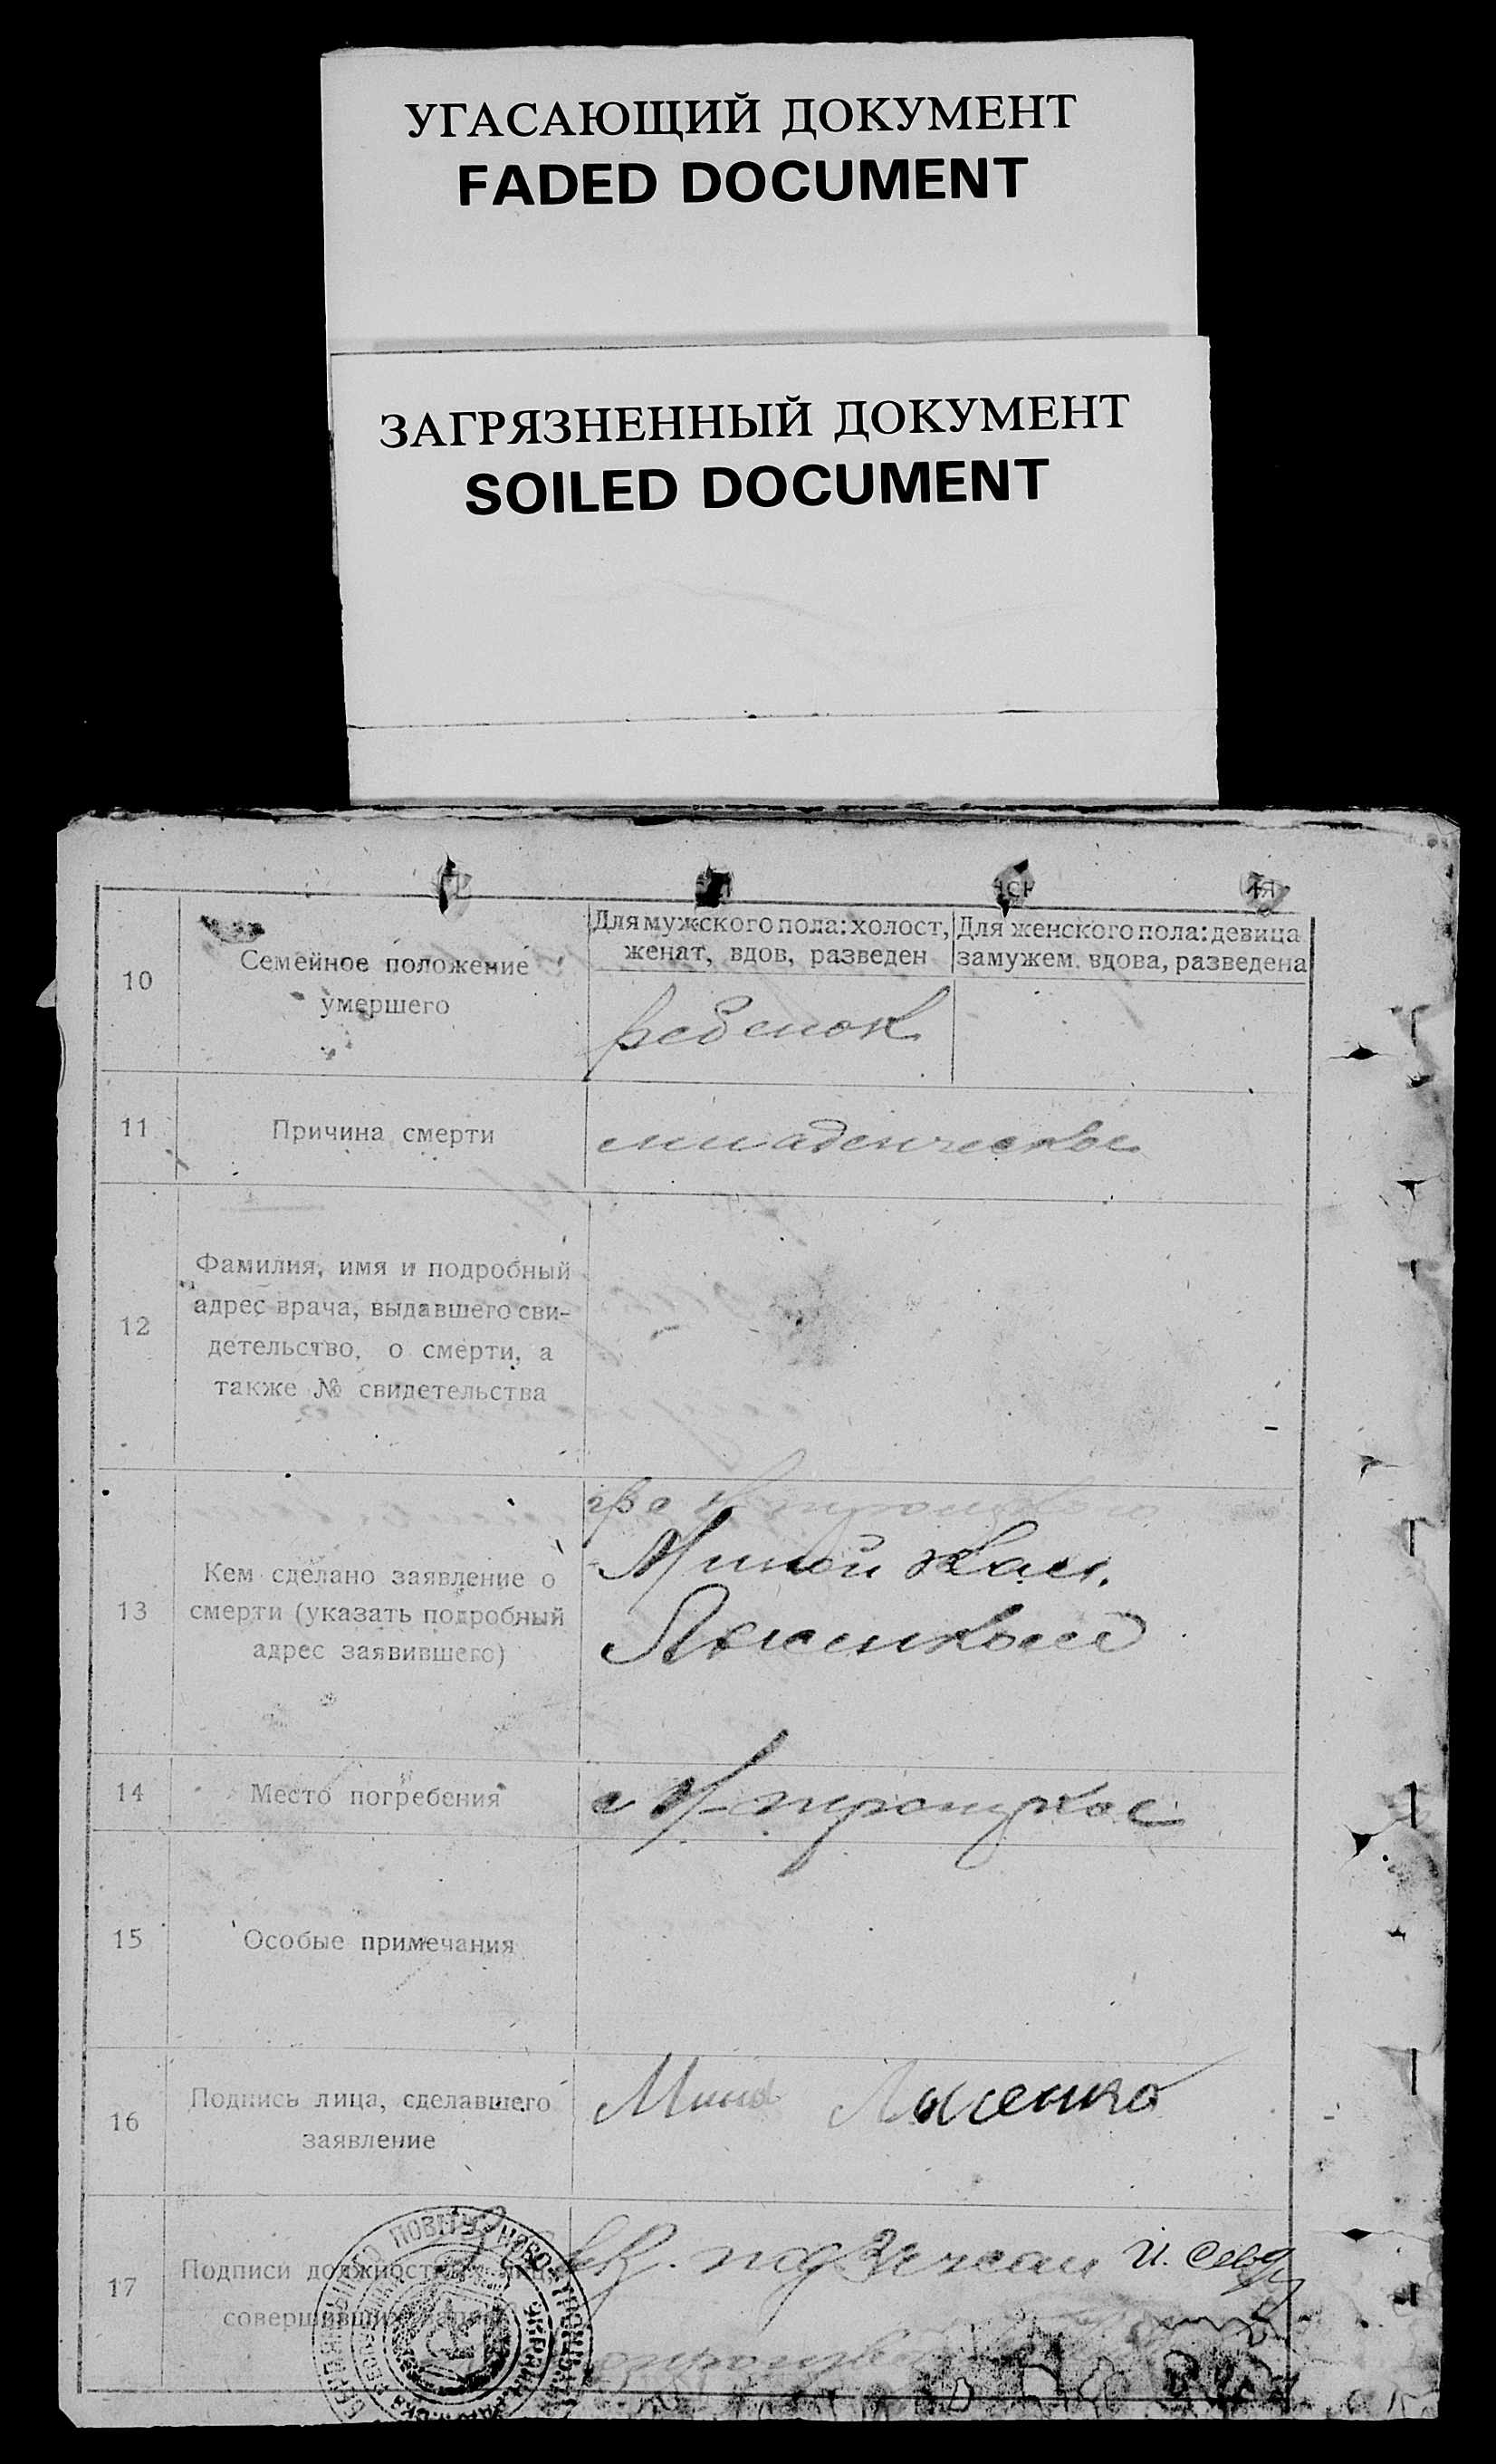 УГАСАЮЩИЙ ДОКУМЕНТ
FADED DOCUMENT
ЗАГРЯЗНЕННЫЙ ДОКУМЕНТ
SOILED DOCUMENT
10
Семейное положение
умершего
Для мужского пола: холост,
женат, вдов, разведен
Для женского пола: девица
замужем, вдова, разведена
ребенок
11
Причина смерти
младенческое
12
Фамилия, имя и подробный
адрес врача, выдавшего сви-
детельство, о смерти, а
также № свидетельства
13
Кем сделано заявление о
смерти (указать подробный
адрес заявившего)
Миной
14
Место погребения
с Н-троицкое
15
Особые примечания
16
Подпись лица, сделавшего
заявление
Мина Лысенко
17
Подписи должностных лиц,
совершивших запись